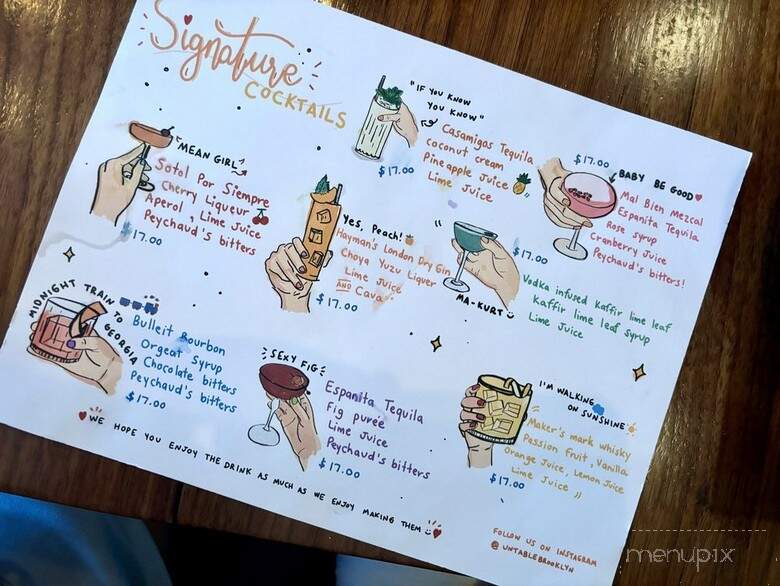 Signature
COCKTAILS
"IF YOU KNOW
YOU KNOW"
Casamigas Tequila
coconut cream
Pineapple Juice
Lime Juice
$17.00
"MEAN GIRL"
Sotol Por Siempre
Cherry Liqueur
Aperol, Lime Juice
Peychaud's bitters
$17.00
Yes, Peach!
Hayman's London Dry Gin
Choya Yuzu Liquer
Lime Juice
AND Cava
$17.00
$17.00
BABY BE GOOD
Mal Bien Mezcal
Espanita Tequila
Rose syrup
Cranberry Juice
Peychaud's bitters!
MA-KURT
$17.00
Vodka infused Kaffir lime leaf
Kaffir lime leaf syrup
Lime Juice
MIDNIGHT TRAIN TO
GEORGIA
Bulleit Bourbon
Orgeat Syrup
Chocolate bitters
Peychaud's bitters
$17.00
SEXY FIG
Espanita Tequila
Fig puree
Lime Juice
Peychaud's bitters
$17.00
I'M WALKING
ON SUNSHINE
Maker's mark whisky
Passion fruit, Vanilla
Orange Juice, Lemon Juice
Lime Juice
$17.00
WE HOPE YOU ENJOY THE DRINK AS MUCH AS WE ENJOY MAKING THEM
FOLLOW US ON INSTAGRAM
@UNTABLEBROOKLYN
menupix